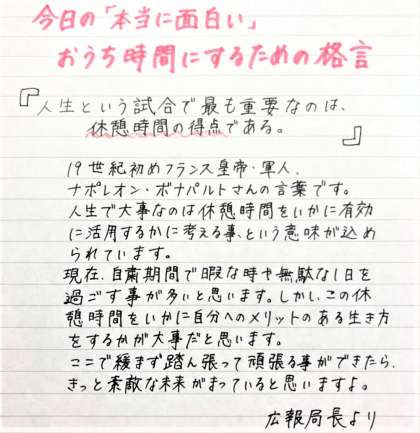 今日の「本当に面白い」
おうち時間にするための格言
『人生という試合で最も重要なのは、
休憩時間の得点である。』
19世紀初めフランス皇帝・軍人、
ナポレオン・ボナパルトさんの言葉です。
人生で大事なのは休憩時間をいかに有効
に活用するかに考える事、という意味が込め
られています。
現在、自粛期間で暇な時や無駄な1日を
過ごす事が多いと思います。しかし、この休
憩時間をいかに自分へのメリットのある生き方
をするかが大事だと思います。
ここで緩まず踏ん張って頑張る事ができたら、
きっと素敵な未来がまっていると思いますよ。
広報局長より